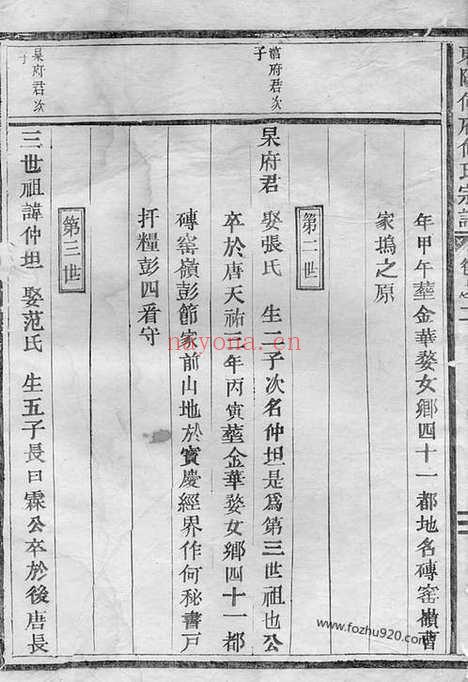 年甲午塟金華婺女鄉四十一都地名磚窑嶺曹
家塢之原
第二世
府君次
子
杲府君 娶張氏 生二子次名仲坦是爲第三世祖也公
卒於唐天祐三年丙寅塟金華婺女鄉四十一都
磚窑嶺彭節家前山地於寶慶經界作何秘書戸
扞糧彭四看守
第三世
杲府君次
子
三世祖諱仲坦 娶范氏 生五子長曰霖公卒於後唐長
nayona.cn
www.fozhu920.com